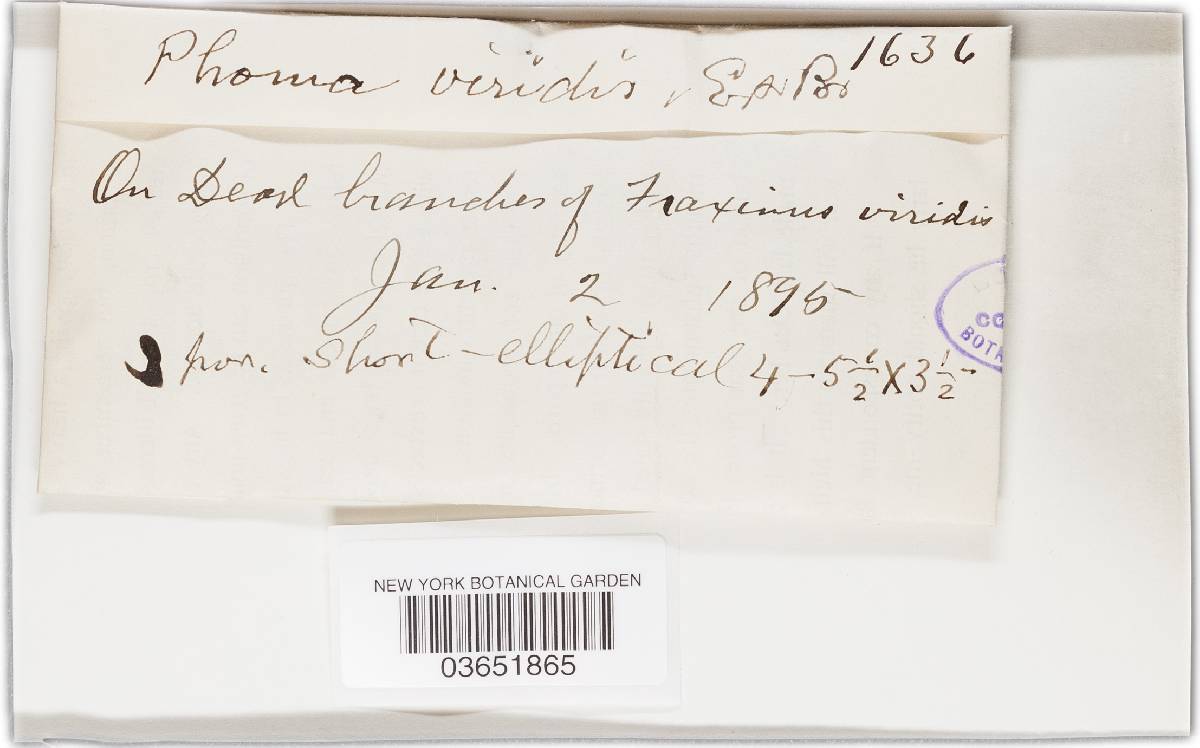 Phoma viridis, E & Bar 1636
On Dead branches of Fraxinus viridis
Jan. 2 1895
Spor. Short-elliptical 4-5½ X 3½-
CO
BOTA
NEW YORK BOTANICAL GARDEN
03651865